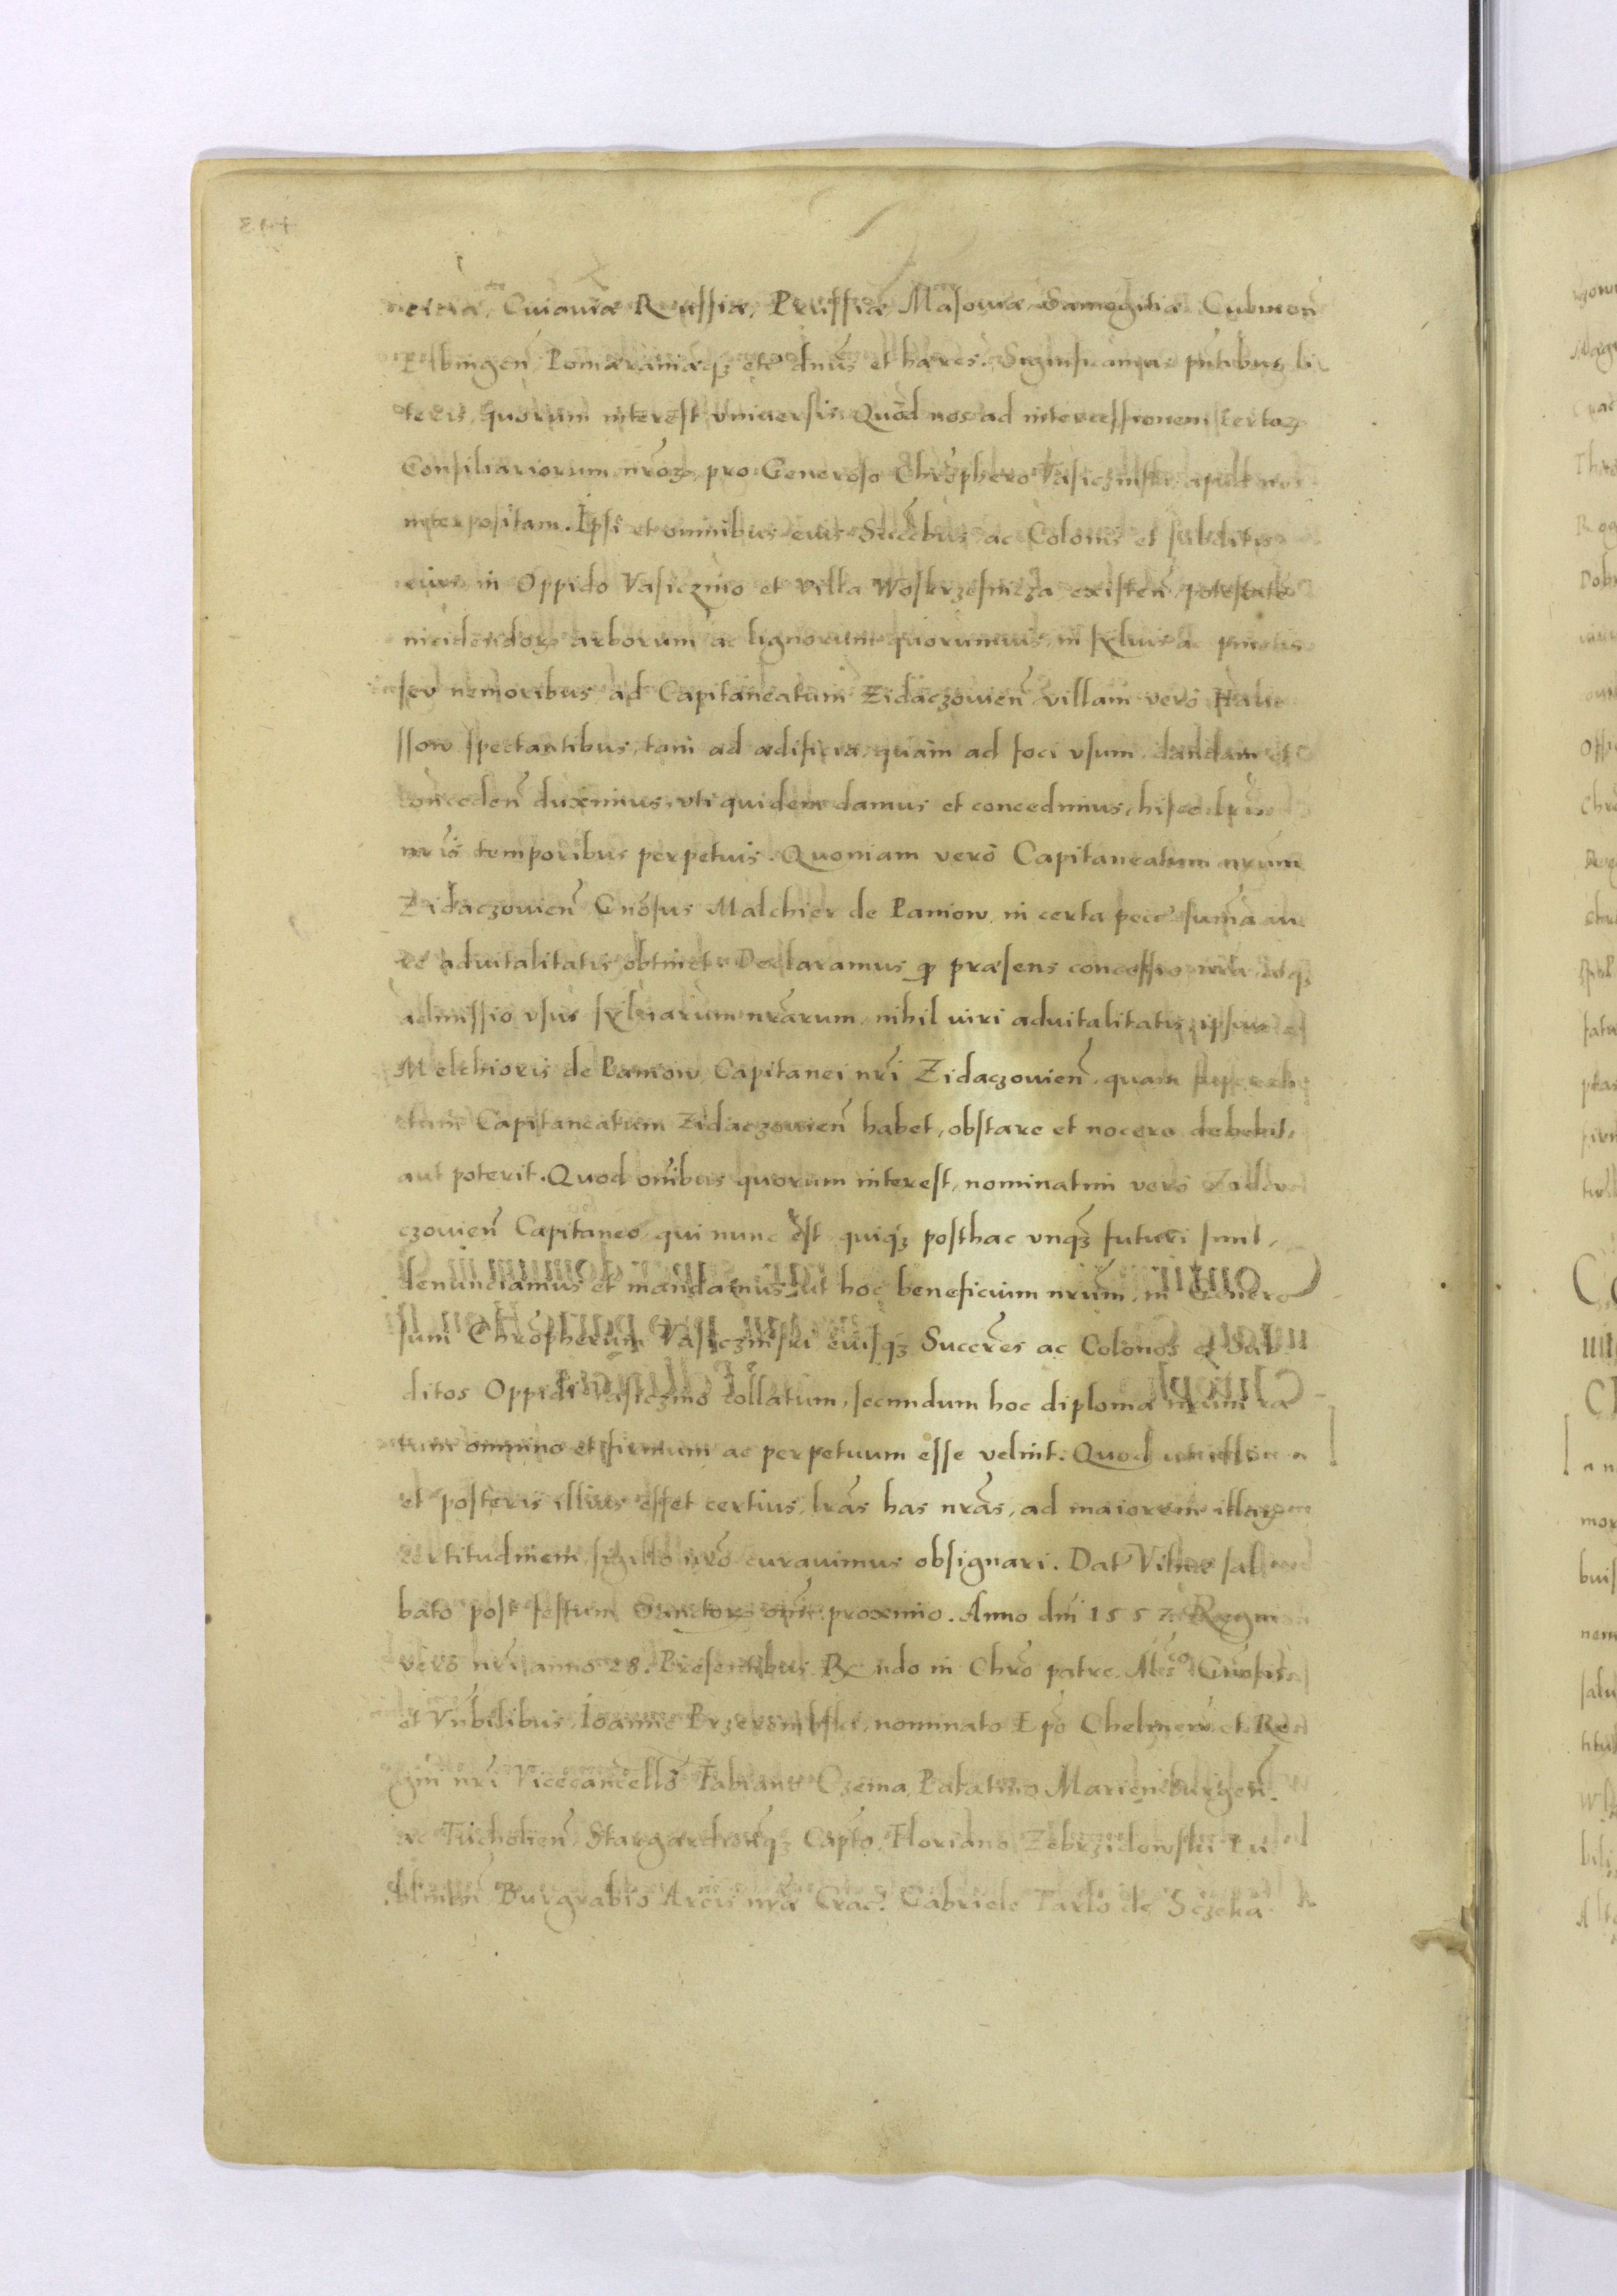 Cuiauiæ Russiæ, Prussiæ, Masouiæ Samogitiæ Culmen̄
Elbingen̄ Pomæraniæqȝ etc dnūs et hæres. Significamus pn̄tibus li
teris, quorum interest vniuersis. Quod nos ad intercessionem certoꝝ
Consiliariorum nr̄oꝝ, pro Generoso Chrōphero Vasiczinski, apud nos
interpositam. Ipsi et omnibus eius Succ̄bus ac Colonis et subditis
eius in Oppido Vasiczino et villa Woskrzesincza existen̄ potestatē
incidendoꝝ arborum ac lignorum quorumuis, in syluis ac
seu nemoribus ad Capitaneatum Zidaczouien̄ villam verò
ssow spectantibus, tam ad ædificia, quàm ad foci vsum, dandam et
conceden̄ duximus, vti quidem damus et concedimus, hisce lr̄is
nr̄is temporibus perpetuis. Quoniam verò Capitaneatum nrūm
Zidaczouien̄ Gnōsus Malchier de Paniow, in certa pecc̄ sum̄a iu
re aduitalitatis obtinet. Declaramus ꝙ præsens concessio nrā, atqȝ
admissio vsus syluarum nrārum, nihil iuri aduitalitatis ipsius
Melchioris de Paniow, Capitanei nr̄i Zidaczouien̄, quam super
ctum Capitaneatum Zidaczouien̄ habet, obstare et nocere debebit,
aut poterit. Quod om̄ibus quorum interest, nominatim verò
czouien̄ Capitaneo, qui nunc est quiqȝ posthac vnqȝ futuri sunt,
denunciamus et mandamus, ut hoc beneficium nrūm, in Genero
sum Chrōpherum Vasiczinski eiusqȝ Succr̄es ac Colonos et Sub
ditos Oppidi Vasiczino collatum, secundum hoc diploma nrūm ra
tum omnino et firmum ac perpetuum esse velint. Quod
et posteris illius esset certius, lrās has nrās, ad maiorem illaꝝ
certitudinem, sigillo nrō curauimus obsignari. Dat Vilnæ sab
bato post festum Sanctoꝝ om̄ proximo. Anno dn̄i 1557. Regni
verò nr̄i anno 28. Præsentibus Rndo in Chrō patre, Gn̄osis
et Nn̄bilibus, Ioanne Przerembski, nominato Epō Chelmen̄ et Re
gni nr̄i Vicecancellō Fabiano Czema, Palatino Marienburgen̄.
ac Tucholien̄ Stargardien̄qȝ Captō. Floriano Zebrzidowski Lu
blinen̄ Burgrabio Arcis nrǣ Crac̄. Gabriele Tarlo de Sczeka